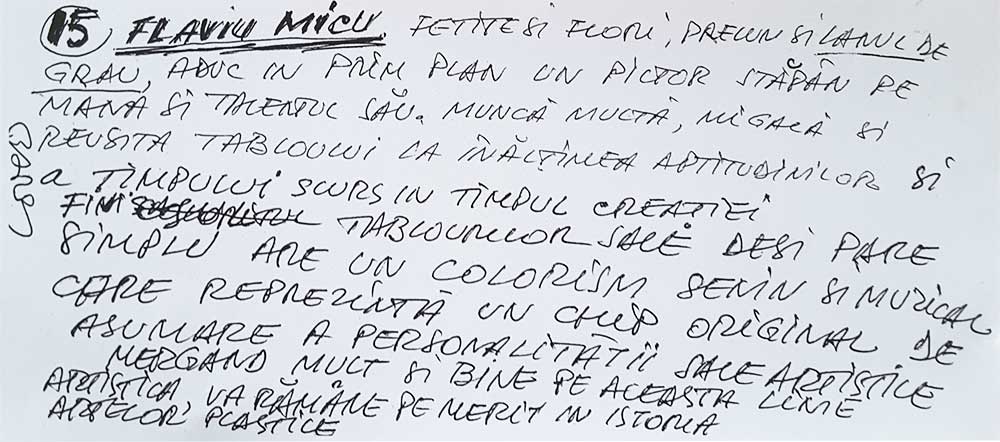 15, FLAVIU MICU. FETITE SI FLORI, PRECUM SI LANUL DE
GRAU, ADUC IN PRIM PLAN UN PICTOR STĂPÂN PE
MANĂ SI TALENTUL SĂU. MUNCĂ MULTĂ, MIGALĂ SI
REUSITA TABLOULUI LA ÎNĂLTIMEA APTITUDINILOR SI
a TIMPULUI SCURS IN TIMPUL CREATIEI
TABLOURILOR SALE DESI PARE
SIMPLU ARE UN COLORISM SENIN SI MUZICAL
CARE REPREZINTĂ UN CHIP ORIGINAL DE
ASUMARE A PERSONALITĂTII SALE ARTISTICE
MERGAND MULT SI BINE PE ACEASTA LINIE
ARTISTICA VA RĂMÂNE PE MERIT IN ISTORIA
ARTELOR PLASTICE